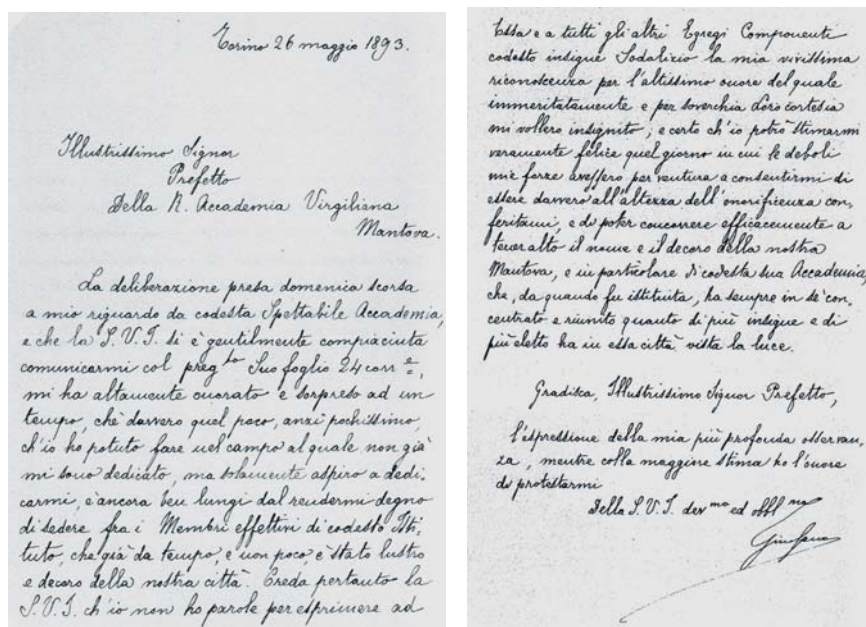 Torino 26 maggio 1893.
Illustrissimo Signor
Prefetto
Della R. Accademia Virgiliana
Mantova.
La deliberazione presa domenica scorsa
a mio riguardo da codesta Spettabile Accademia,
e che la S. V. I. si è gentilmente compiaciuta
comunicarmi col preg.to Suo foglio 24 corr.e,
mi ha altamente onorato e sorpreso ad un
tempo, chè davvero quel poco, anzi pochissimo,
ch'io ho potuto fare nel campo al quale, non già
mi sono dedicato, ma solamente aspiro a dedi-
carmi, è ancora ben lungi dal rendermi degno
di sedere fra i Membri effettivi di codesto Isti-
tuto, che già da tempo, e non poco, è stato lustro
e decoro della nostra città. Creda pertanto la
S. V. I. ch'io non ho parole per esprimere ad
Essa e a tutti gli altri Egregi Componenti
codesto insigne Sodalizio la mia vivissima
riconoscenza per l'altissimo onore del quale
immeritatamente e per soverchia Loro cortesia
mi vollero insignito; e certo ch'io potrò stimarmi
veramente felice quel giorno in cui le deboli
mie forze avessero per ventura a consentirmi di
essere davvero all'altezza dell'onorificenza con-
feritami, e di poter concorrere efficacemente a
tener alto il nome e il decoro della nostra
Mantova, e in particolare di codesta sua Accademia,
che, da quando fu istituita, ha sempre in sè con-
centrato e riunito quanto di più insigne e di
più eletto ha in essa città vista la luce.
Gradisca, Illustrissimo Signor Prefetto,
l'espressione della mia più profonda osservan-
za, mentre colla maggiore stima ho l'onore
di protestarmi
Della S. V. I. dev.mo ed obbl.mo